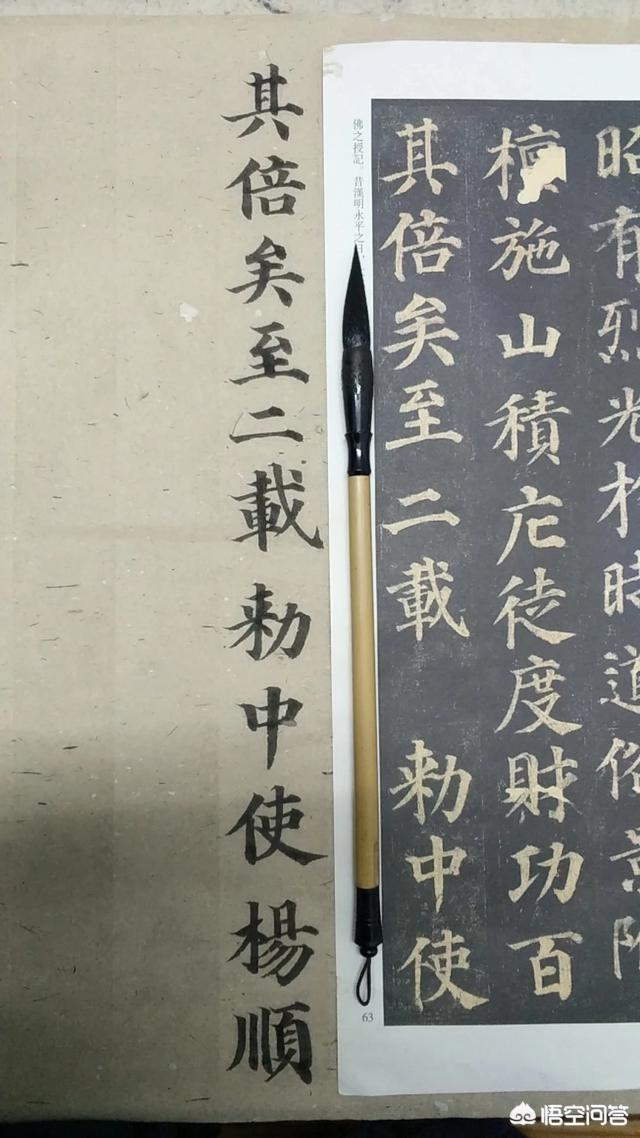 昭有烈光扵時道俗景附
檀施山積庀徒度財功百
其倍矣至二載 勅中使
佛之授記。昔漢明永平之
63
其倍矣至二載勅中使楊順
悟空问答